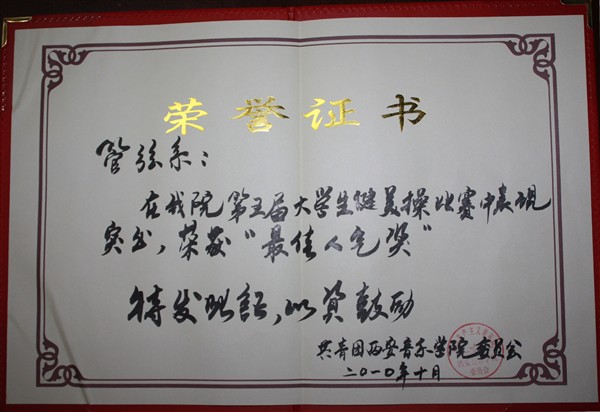 荣誉证书
管弦系:
在我院第五届大学生健美操比赛中表现
突出,荣获“最佳人气奖”
特发此证,以资鼓励
共青团西安音乐学院委员会
二〇一〇年十月